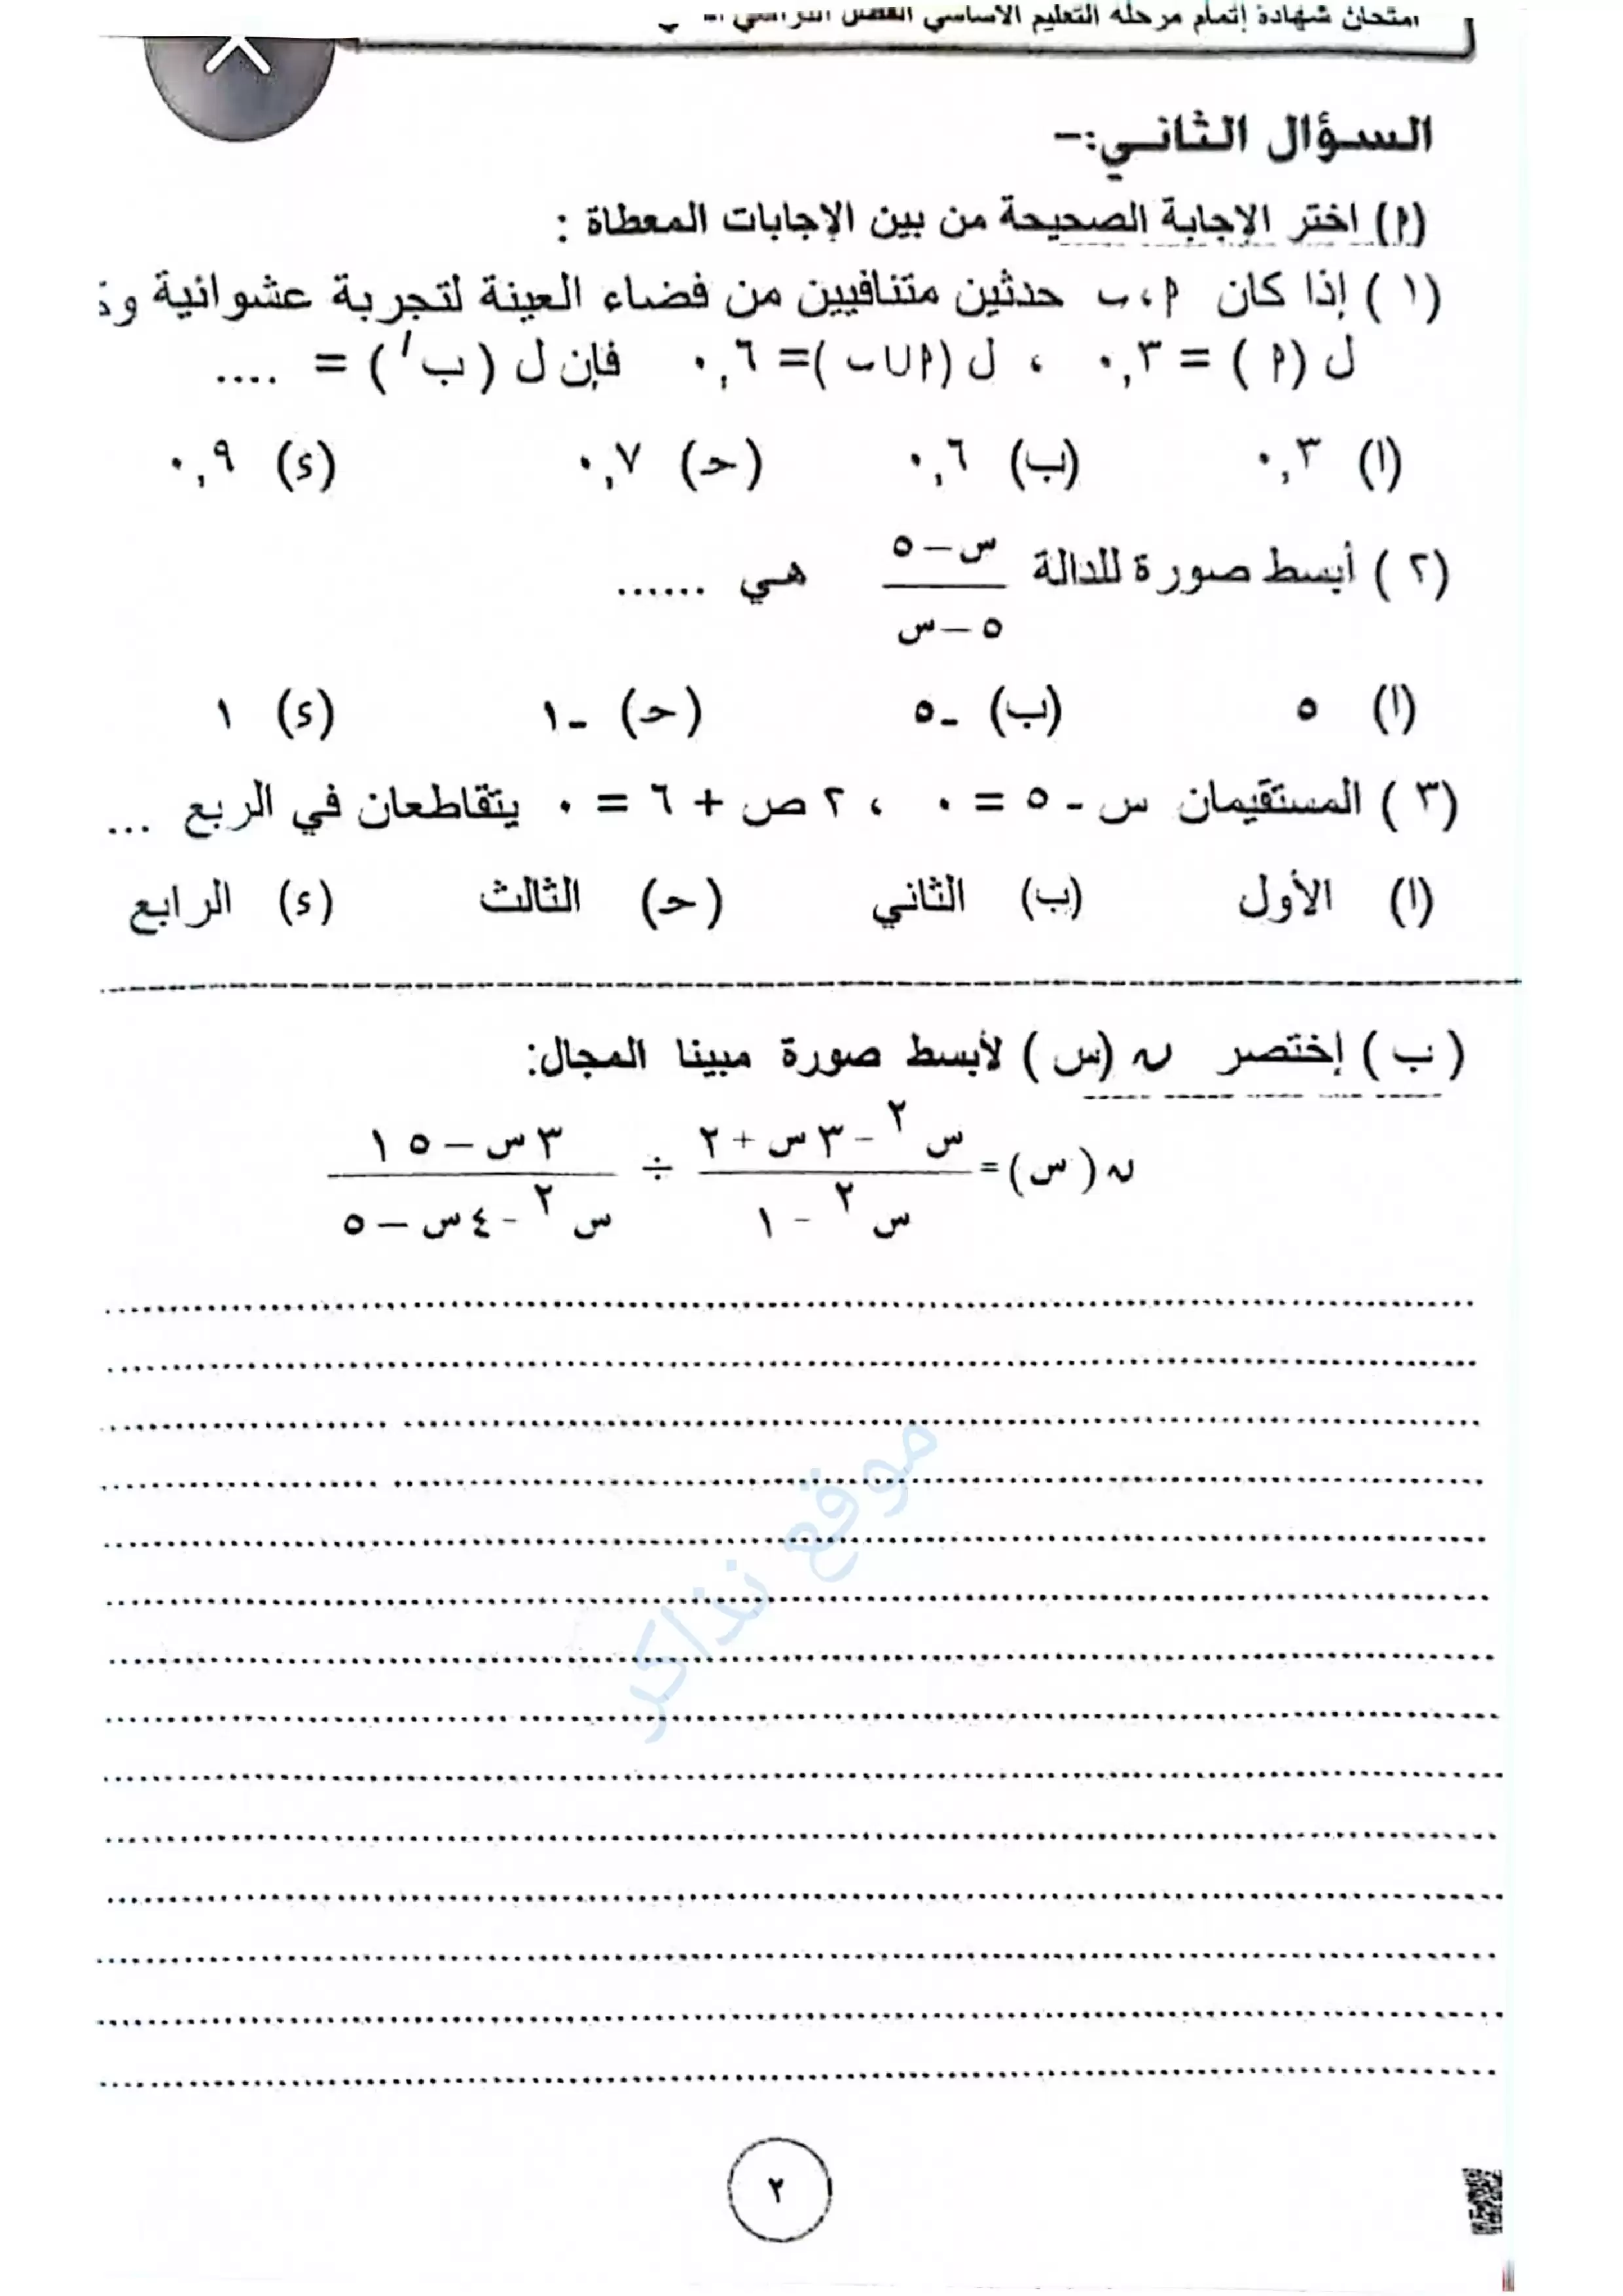 امتحان شهادة إتمام مرحلة التعليم الأساسي الفصل الدراسي
السؤال الثاني:-
(م) اختر الإجابة الصحيحة من بين الإجابات المعطاة :
(١) إذا كان م، ب حدثين متنافيين من فضاء العينة لتجربة عشوائية
ل (م) = ٠,٣ ، ل (م∪ب) = ٠,٦ فإن ل (ب′) = ....
(ا) ٠,٣ (ب) ٠,٦ (حـ) ٠,٧ (ء) ٠,٩
(٢) أبسط صورة للدالة س – ٥ / ٥ – س هي ......
(ا) ٥ (ب) -٥ (حـ) -١ (ء) ١
(٣) المستقيمان س - ٥ = ٠ ، ٢ ص + ٦ = ٠ يتقاطعان في الربع ...
(ا) الأول (ب) الثاني (حـ) الثالث (ء) الرابع
(ب) إختصر ن (س) لأبسط صورة مبينا المجال:
ن (س) = س² - ٣س + ٢ / س² - ١ ÷ ٣س – ١٥ / س² - ٤س – ٥
موقع نذاكر
٢